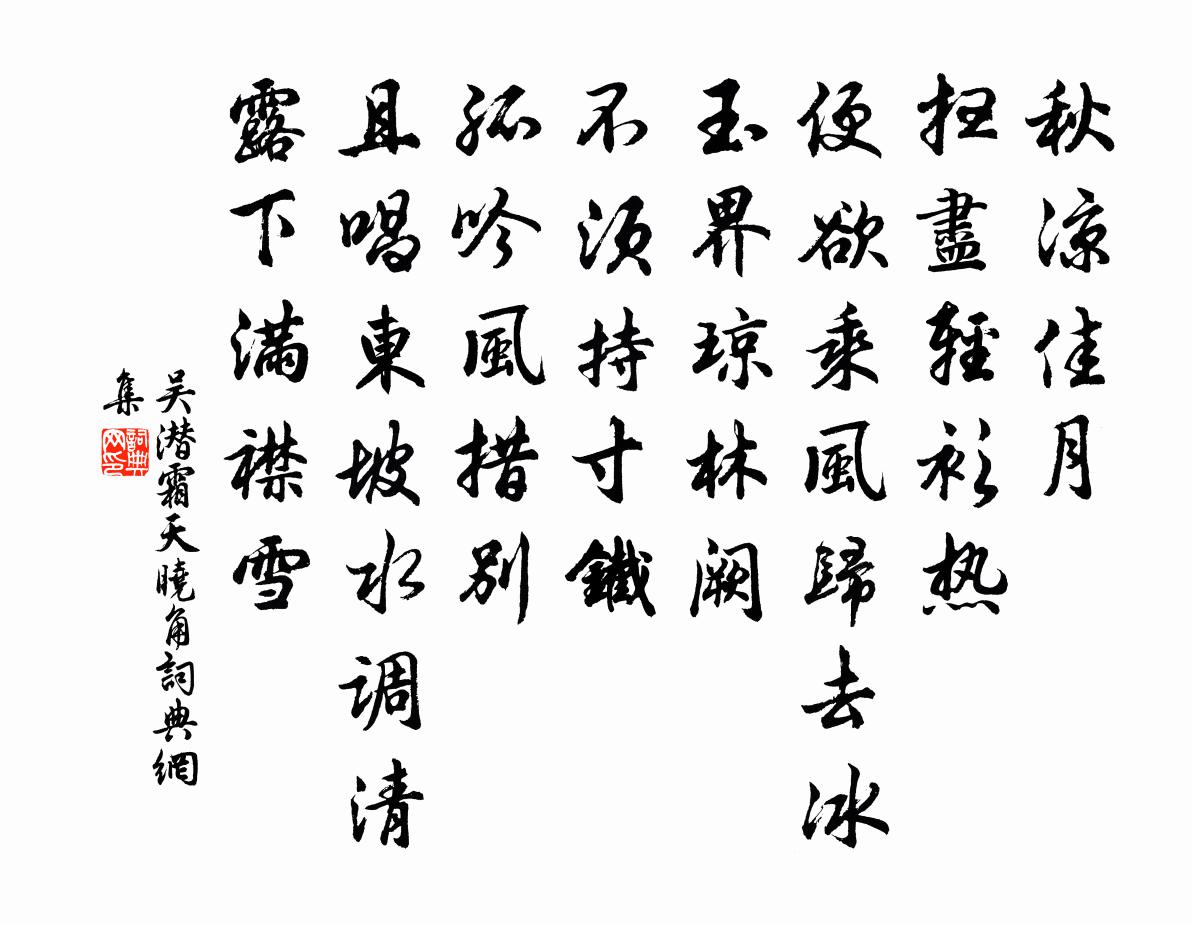 秋凉佳月
扫盡輕衫热
便欲乘風歸去冰
玉界琼林阙
不须持寸鐵
孤吟風措别
且唱東坡水调清
露下满襟雪
吴潜霜天曉角詞典網
集
詞典
网印